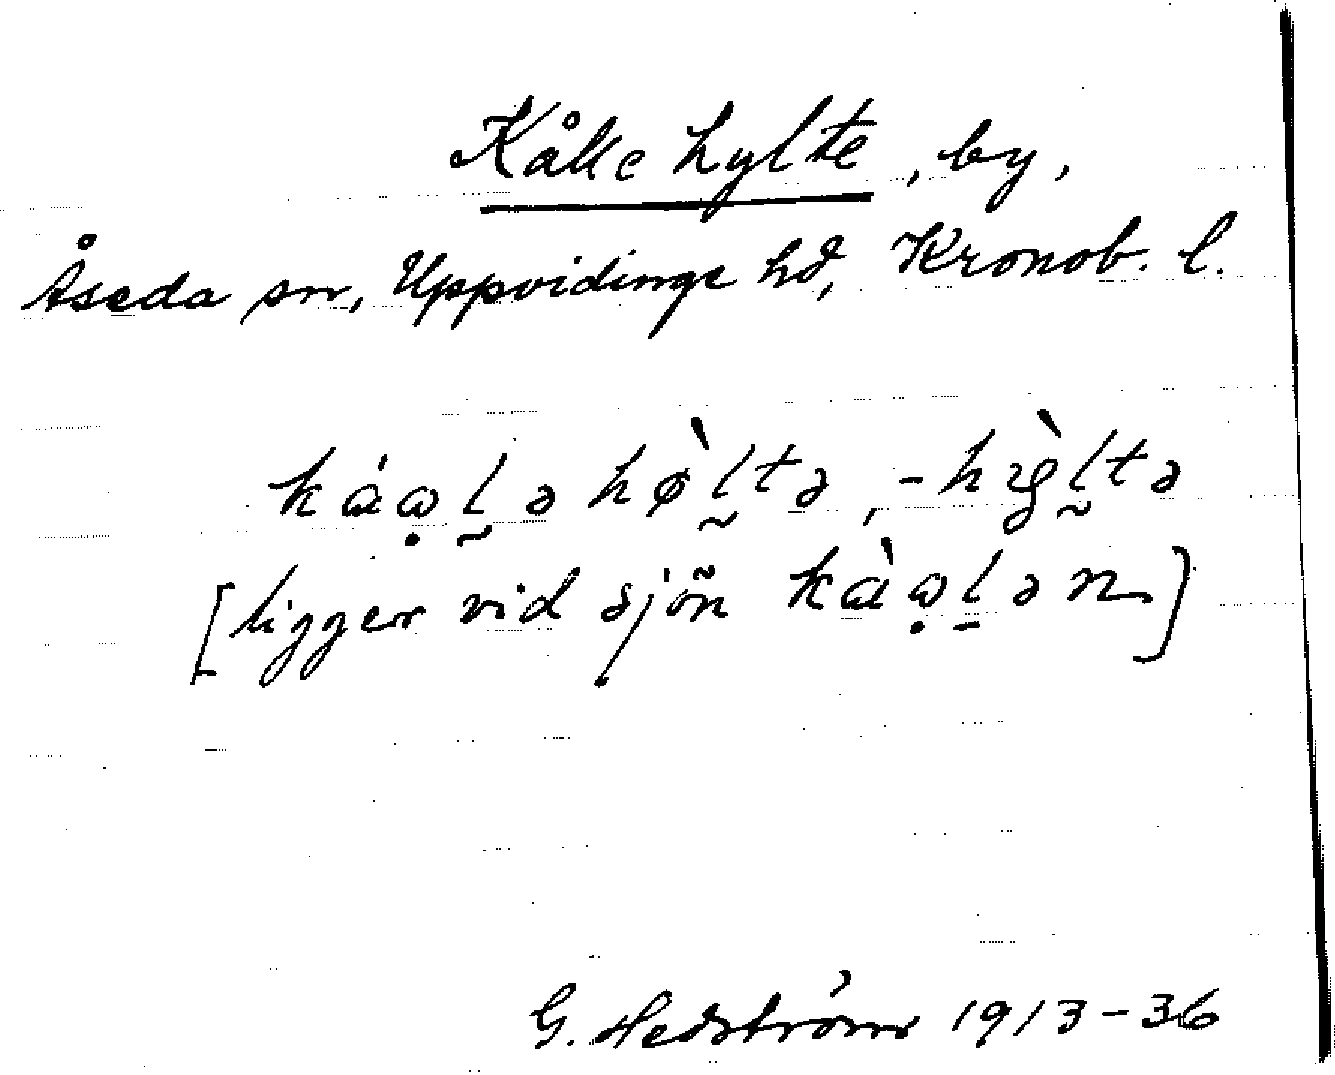 Kållehylte, by,
Åseda sn, Uppvidinge hd, Kronob. l.
káo̤l̰ə hø̀l̰tə, -hỳl̰tə
[ligger vid sjön kàọl̠ən]
G. Hedström 1913-36